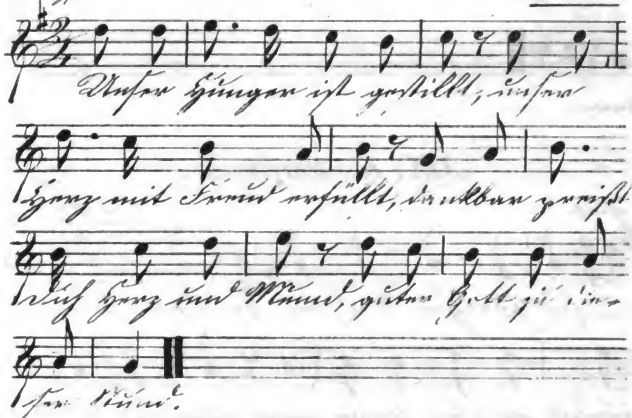 Unser Hunger ist gestillt, unser
Herz mit Freud erfüllt, dankbar preißt
dich Herz und Mund, guter Gott zu die-
ser Stund.